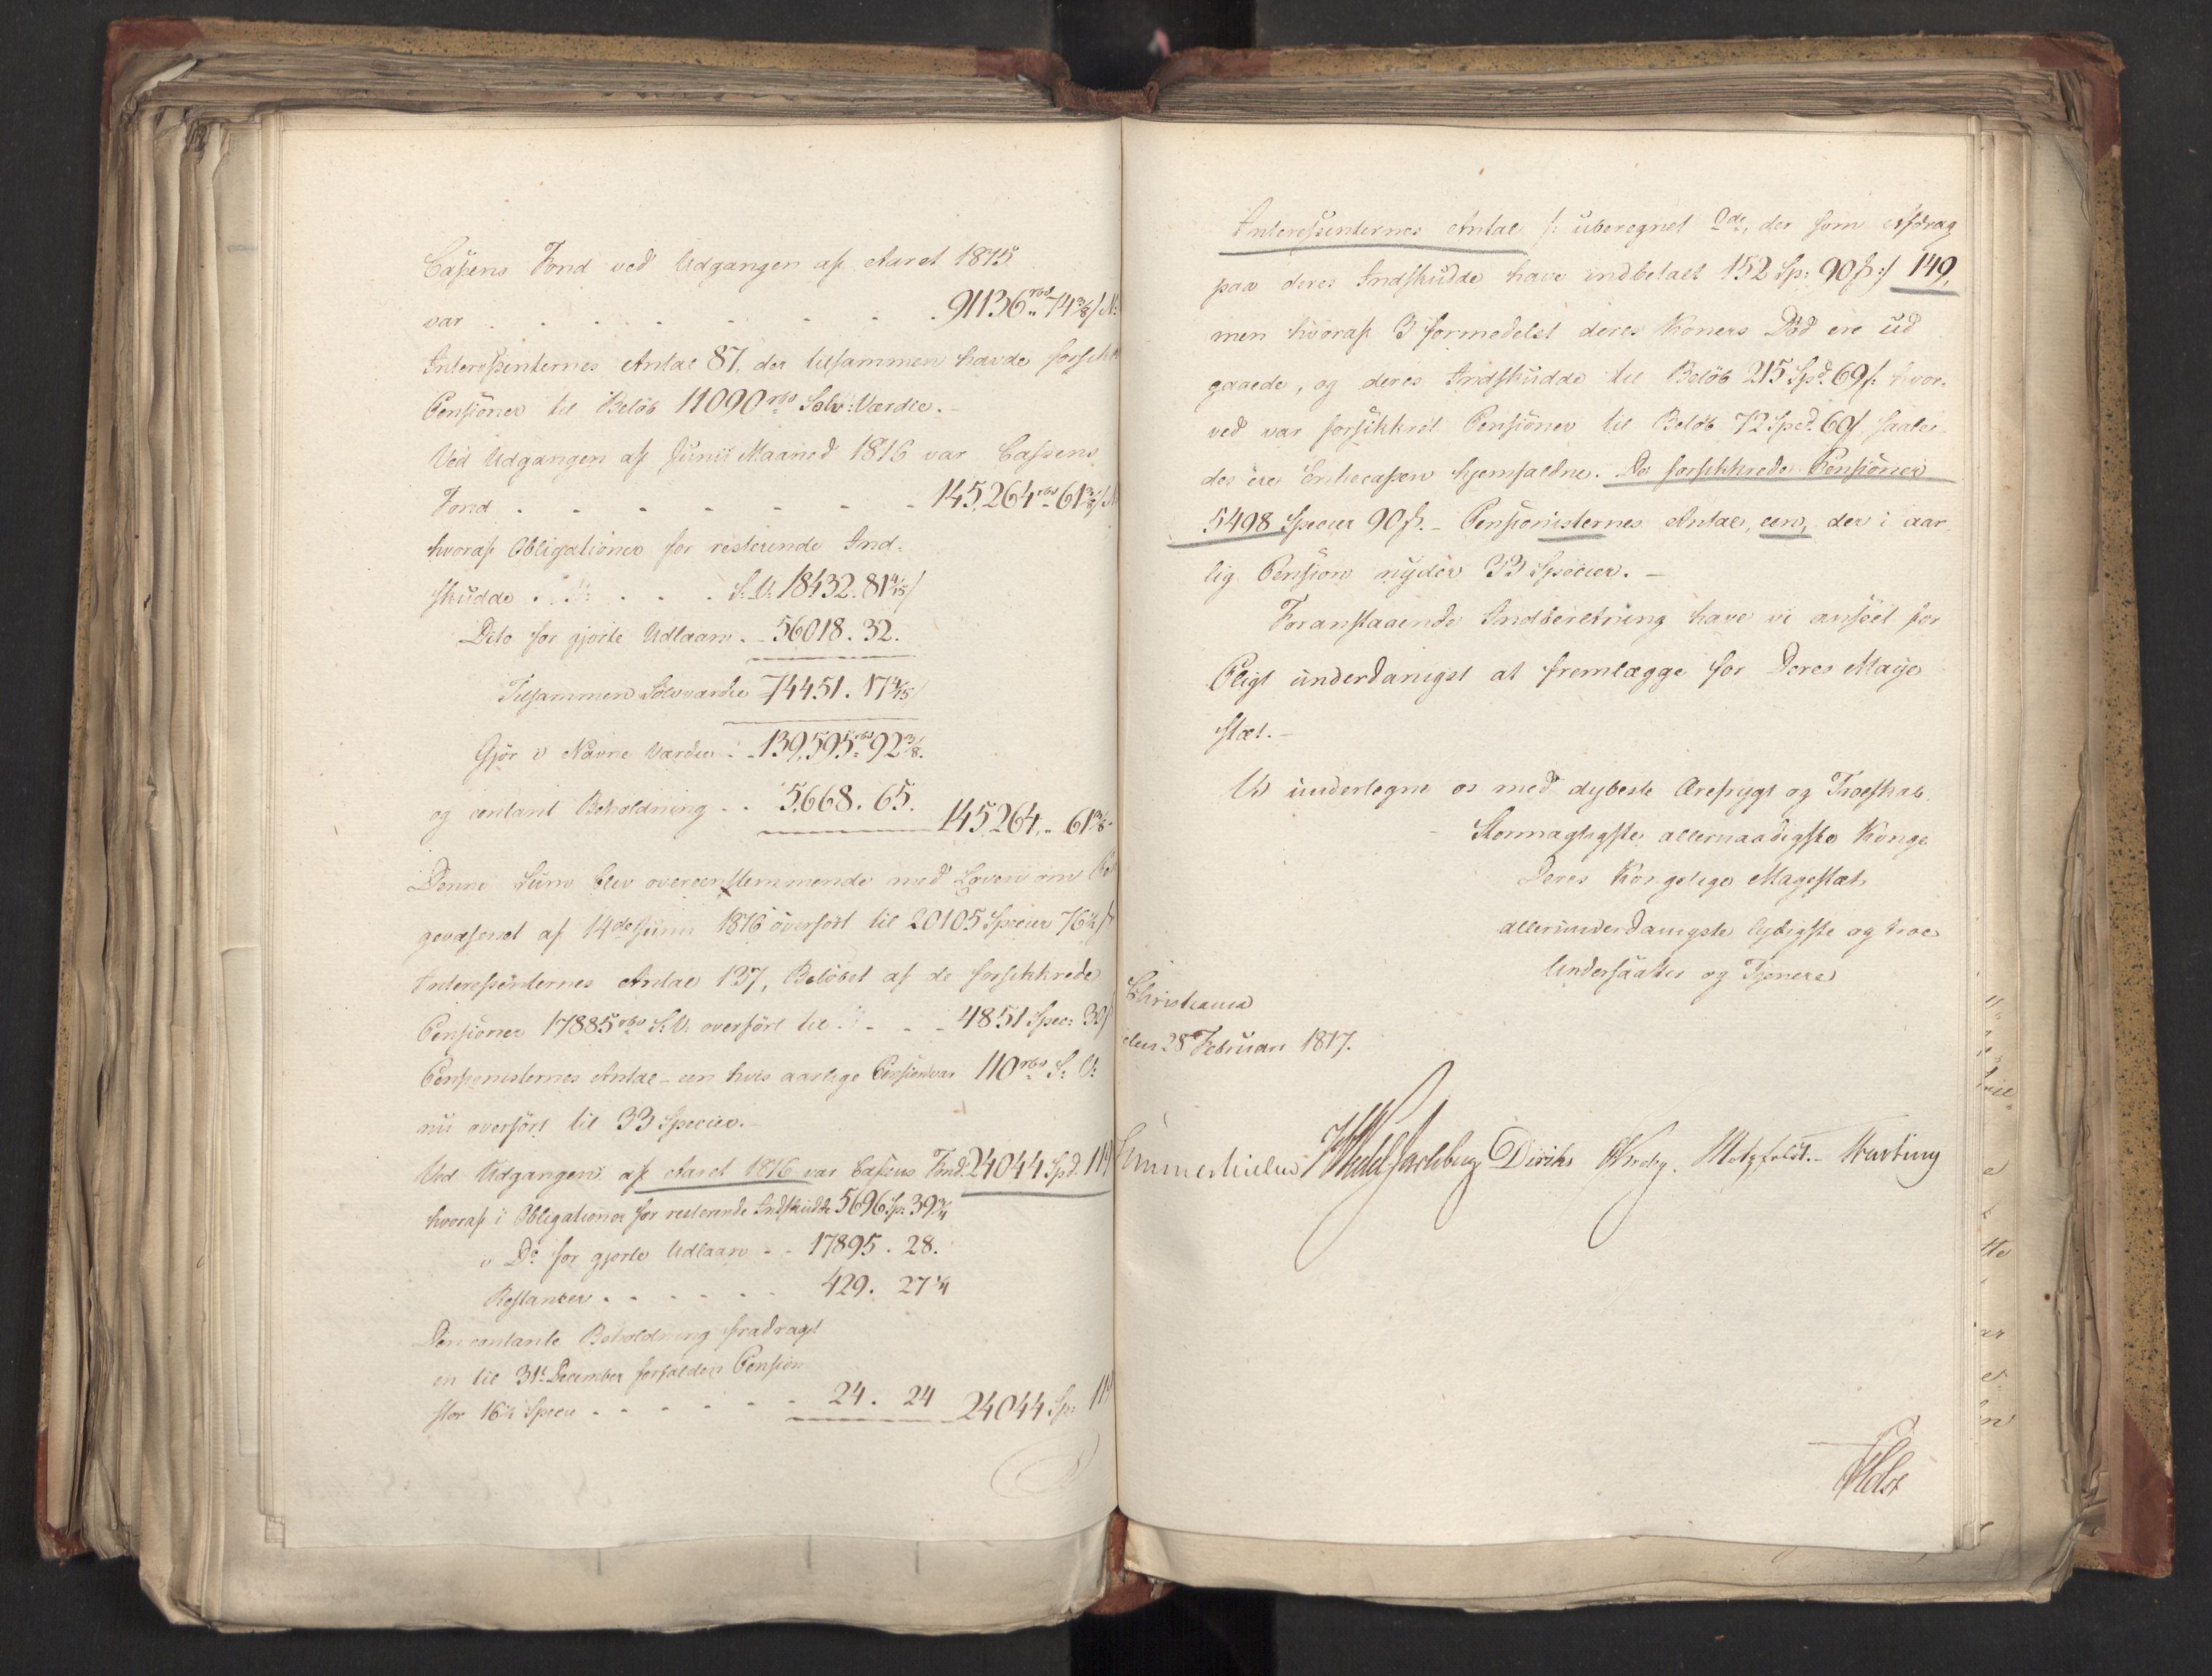 Cassens Fond ved Udgangen af Aaret 1815
var . . . . . . . 91136 rbd 74 3/8 s N:
Interessenternes Antal 87, der tilsammen havde forsikk
Pensioner til Beløb 11090 rbd Sølv: Værdie. –
Ved Udgangen af Junii Maaned 1816 var Cassens
Fond . . . . . . . 145,264 rbd 61 3/8 s N
hvoraf Obligationer for resterende Ind-
skudde . . . . S. V. 18432. 81 4/15 s
Dito for gjorte Udlaan . – 56018. 32.
Tilsammen Sølvværdie 74451. 17 4/15 s
Gjør i Navne Værdie : 139,595 rbd 92 3/8.
og contant Beholdning . . 5,668. 65.
145,264 „ 61 3/8 –
Denne Sum blev overeenstemmende med Loven om
gevæsenet af 14de Junii 1816 overført til 20105 Specier 76 1/2 s
Interessenternes Antal 137, Beløbet af de forsikkrede
Pensioner 17885 rbd S. V. overført til - - - 4851 Spec: 30 s
Pensionisternes Antal – een hvis aarlige Pension var 110 rbd S: V:
nu overført til 33 Specier. –
Ved Udgangen af Aaret 1816 var Cassens Fond 24044 Spd. 119
hvoraf i Obligationer for resterende Indskudde 5696 Sp: 39 3/4
i Do for gjorte Udlaan - - 17895. 28.
Restancer . - - - - - 429. 27 1/4
Den contante Beholdning fradragt
en til 31te December forfalden Pension
stor 16 1/2 Specie - - - - - - 24. 24 24044 Sp: 119
Interessenternes Antal /: uberegnet 9de, der som Afdrag
paa deres Indskudde have indbetalt 152 Sp: 90 s :/ 149,
men hvoraf 3 formedelst deres Koners Død ere ud
gaaede, og deres Indskudde til Beløb 215 Spd. 69 s: hvor-
ved var forsikkret Pensioner til Beløb 72 Spd. 60 s saale-
des ere Enkecassen hjemfaldne. De forsikkrede Pensioner
5498 Specier 90 s. – Pensionisternes Antal, een, der i aar-
lig Pension nyder 33 Specier. –
Foranstaaende Indberetning have vi anseet for
Pligt underdanigst at fremlægge for Deres Maje
stæt. –
Vi undertegne os med dybeste Ærefrygt og Troeskab.
Stormægtigste, allernaadigste Konge
Deres Kongelige Majestæts
allerunderdanigste lydigste og troe
Undersaatter og Tjenere
Christiania
den 28 Februari 1817.
Sommerhielm HWedel Jarlsberg Diriks Krohg. Motzfeldt. – Hartung
Holst